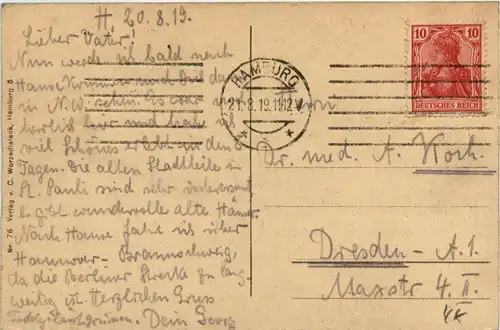 H, 20.8.19.
Lieber Vater!
Nun werde ich bald nach
Hause kommen und Dich da
in N.W. sehen. Es war
herrlich hier und habe ich
viel Schönes erlebt in den 8
Tagen. Die alten Stadtteile in
St. Pauli sind sehr interessant
es gibt wundervolle alte Häuser.
Nach Hause fahr ich über
Hannover-Braunschweig,
da die Berliner Strecke zu lang-
weilig ist. Herzlichen Gruss
Dein Georg
Nr. 76 Verlag v. C. Worzedialek, Hamburg 6
HAMBURG
21.8.19.11-12V
10 10
DEUTSCHES REICH
Herrn
Dr. med. A. Koch.
Dresden-A.1
Maxstr 4. II.